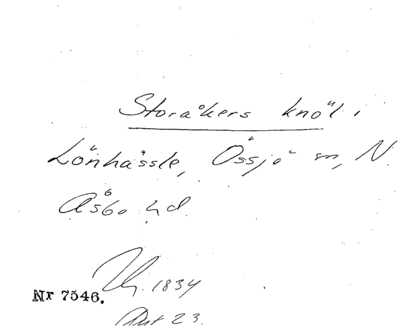 Storåkers knöl i
Lönhässle, Össjö sn, N.
Åsbo hd.
1834
Nr 7546.
23.